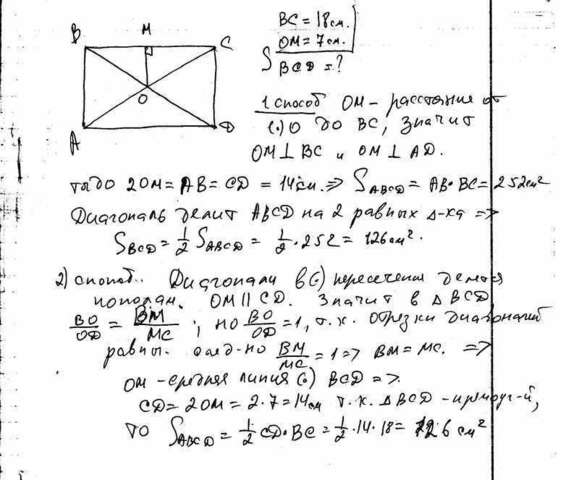 B M C
BC = 18 см.
OM = 7 см.
S BCD = ?
O
A D
1 способ OM - расстояние от
(.) O до BC, значит
OM ⊥ BC и OM ⊥ AD.
тогда 2OM = AB = CD = 14 см. => S ABCD = AB · BC = 252 см²
Диагональ делит ABCD на 2 равных Δ-ка =>
S BCD = 1/2 S ABCD = 1/2 · 252 = 126 см².
2) способ. Диагонали в (.) пересечения делятся
пополам. OM || CD. Значит в Δ BCD
BO/OD = BM/MC ; но BO/OD = 1, т.к. отрезки диагоналей
равны. след-но BM/MC = 1 => BM = MC. =>
OM - средняя линия (.) BCD =>
CD = 2OM = 2 · 7 = 14 см т.к. Δ BCD - прямоуг-й,
то S ABCD = 1/2 CD · BC = 1/2 · 14 · 18 = 126 см²